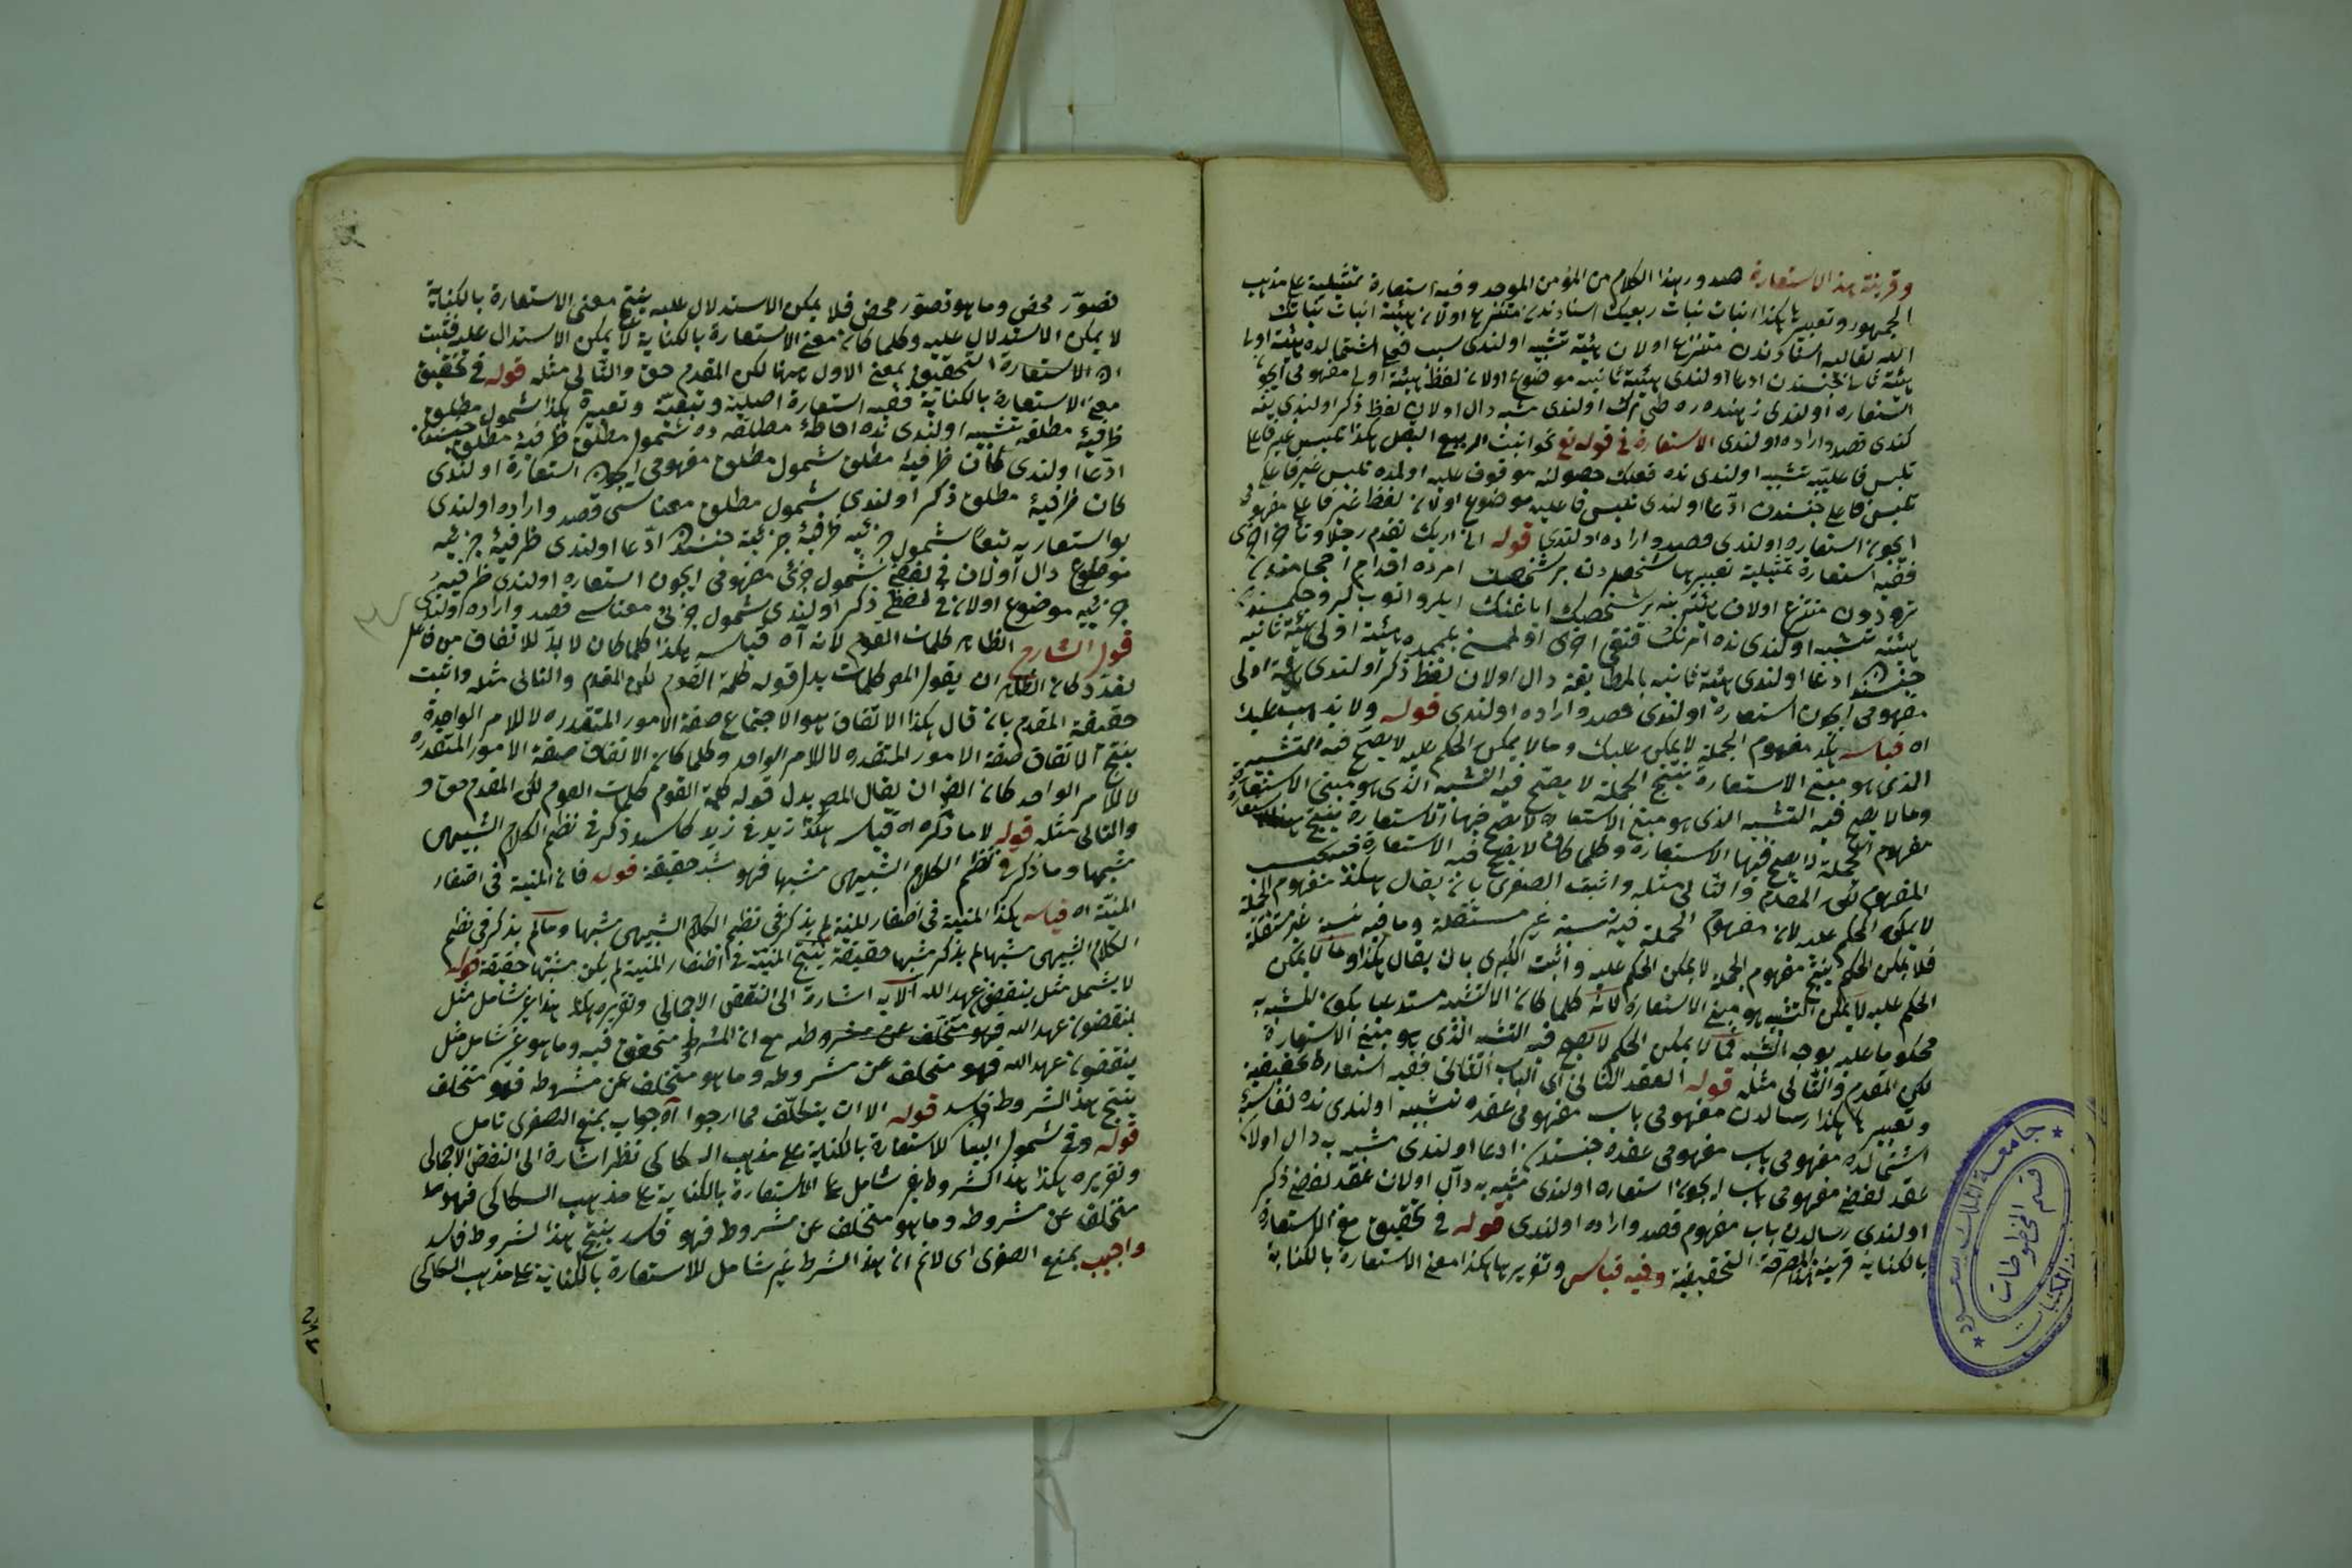 وقرينة هذا الاستعارة صدور هذا الكلام من المؤمن الموحد وفيه استعارة تمثيلية على مذهب
الجمهور وتعبيرها هكذا انبات نبات ربيعك اسنادندن متنزع اولان هيئة انبات نباتك
الله تعاليه اسنادندن متنزع اولان هيئته تشبيه اولندى سبب فى اشتمالده هيئة اولى
هيئة ثانيه جنسندن ادعا اولندى هيئة ثانيه موضوع اولان لفظ هيئة اولى مفهومى ايچون
استعاره اولندى ذكر اولندى
كندى قصد واراده اولندى الاستعارة فى قوله نحو انبت الربيع البقل هكذا تلبس غير فاعل
تلبس فاعليه تشبيه اولندى نده فعلك حصولنه موقوف عليه اولمده تلبس غير فاعل
تلبس فاعلى جنسندن ادعا اولندى تلبس فاعليه موضوع اولان لفظ غير فاعلى مفهومى
ايچون استعاره اولندى قصد واراده اولندى قوله انى اريك تقدم رجلا وتأخر اخرى
ففيه استعارة تمثيلية تعبيرها شخص بر شخصك امرده اقدام
ترددن متنزع اولان هيئته بر شخصك اياغنك ايلرو
هيئته تشبيه اولندى نده هيئة اولى هيئة ثانيه
جنسندن ادعا اولندى هيئة ثانيه بالمطابقه دال اولان لفظ ذكر اولندى هيئة اولى
مفهومى ايچون استعارة اولندى قصد واراده اولندى قوله ولا يذهب عليك
اه قياسه هكذا مفهوم الجملة لا يمكن عليك وما لا يمكن الحكم عليه لا يصح فيه التشبيه
الذى هو مبنى الاستعارة ينتج الجملة لا يصح فيه التشبيه الذى هو مبنى الاستعارة
وما لا يصح فيه التشبيه الذى هو مبنى الاستعارة لا يصح فيها الاستعارة ينتج
مفهوم الجملة لا يصح فيها الاستعارة وكلما كان لا يصح فيه الاستعارة
المفهوم لكن المقدم والتالى مثله واثبت الصغرى بان يقال هكذا مفهوم الجملة
لا يمكن الحكم عليه لان مفهوم الجملة فيه نسبة غير مستقلة وما فيه نسبة غير مستقلة
فلا يمكن الحكم ينتج مفهوم الجملة لا يمكن الحكم عليه واثبت الكبرى بان يقال هكذا وما لا يمكن
الحكم عليه لا يمكن التشبيه هو مبنى الاستعارة لانه كلما كان الا التشبيه مستدعيا بكون المشبه به
محكوما عليه بوجه الشبه فما لا يمكن الحكم لا يصح فيه التشبيه الذى هو مبنى الاستعارة
لكن المقدم والتالى مثله قوله العقد الثانى اى الباب الثانى ففيه استعارة تحقيقية
وتعبيرها هكذا رسالدن مفهومى باب مفهومى عقده تشبيه اولندى نده
اشتمالده مفهومى باب مفهومى عقده جنسندن ادعا اولندى مشبه به دال اولان
عقد لفظى مفهومى باب ايچون استعاره اولندى مشبه به دال اولان عقد لفظى ذكر
اولندى رسالدن باب مفهوم قصد واراده اولندى قوله فى تحقيق معنى الاستعارة
بالكناية قرينة المصرحة التحقيقية وفيه قياس وتقريرها هكذا معنى الاستعارة بالكناية
جامعة الملك سعود
قسم المخطوطات
المكتبات
تصور محض وما هو تصور محض فلا يمكن الاستدلال عليه ينتج معنى الاستعارة بالكناية
لا يمكن الاستدلال عليه وكلما كان معنى الاستعارة بالكناية لا يمكن الاستدلال عليه فثبت
ان الاستعارة التحقيق بمعنى الاول هنا لكن المقدم حق والتالى مثله قوله فى تحقيق
معنى الاستعارة بالكناية ففيه استعارة اصلية وتبعية وتعبيره هكذا شمول مطلق
ظرفية مطلقه تشبيه اولندى نده احاطة مطلقه ده شمول مطلق ظرفية مطلق جنسندن
ادعا اولندى كان ظرفية مطلق شمول مطلق مفهومى ايچون استعارة اولندى
كان ظرفية مطلق ذكر اولندى شمول مطلق معناسى قصد واراده اولندى
بو استعاريه تبعا شمول جزئيه ظرفية جزئية جنسندن ادعا اولندى ظرفية جزئيه
موضوع دال اولان فى لفظى شمول جزئى مفهومى ايچون استعاره اولندى ظرفيه
جزئيه موضوع اولان فى لفظى ذكر اولندى شمول جزئى معناسى قصد واراده اولندى
قول الشارح الظاهر كلمات القوم لانه آه قياسه هكذا كلما كان لا بد للاتفاق من فاعل
تعدد كان الظاهر ان يقول المص كلمات بدل قوله كلمة القوم لكن المقدم والتالى مثله واثبت
حقيقة المقدم بان قال هكذا الاتفاق هو الاجتماع صفة الامور المتعدده لا للامر الواحدة
ينتج الاتفاق صفة الامور المتعدده لا للامر الواحد وكلما كان الاتفاق صفة الامور المتعدده
لا للامر الواحد كان الظ ان يقال المص بدل قوله كلمة القوم كلمات القوم لكن المقدم حق و
والتالى مثله قوله لا ما ذكره اه قياسه هكذا زيد فى زيد كاسد ذكر فى نظم الكلام الشبيهى
مشبها وما ذكر فى نظم الكلام الشبيهى مشبها فهو شبه حقيقة قوله فان المنية فى اظفار
المنية اه قياسه هكذا المنية فى اظفار المنية لم يذكر فى نظم الكلام الشبيهى مشبها وما لم يذكر فى نظم
الكلام الشبيهى مشبها لم يذكر مشبها حقيقة ينتج المنية فى اظفار المنية لم يكن مشبها حقيقة قوله
لا يشمل مثل ينقضون عهد الله الآيه اشارة الى النقض الاجمالى وتقريره هكذا هذا غير شامل مثل
ينقضون عهد الله فهو متخلف عن مشروطه مع ان المشرط متحقق فيه وما هو غير شامل مثل
ينقضون عهد الله فهو متخلف عن مشروطه وما هو متخلف عن مشروطه فهو متخلف
ينتج هذا الشروط فاسد قوله الا ان يتكلف مما ارجوا آه جواب بمنع الصغرى تامل
قوله وفى شمول البيا للاستعارة بالكناية على مذهب السكاكى نظر اشارة الى النقض الاجمالى
وتقريره هكذا هذا الشروط غير شامل على الاستعارة بالكناية على مذهب السكاكى فهو
متخلف عن مشروطه وما هو متخلف عن مشروط فهو فاسد ينتج هذا الشروط فاسد
واجيب بمنع الصغرى اى لانم ان هذا الشرط غير شامل للاستعارة بالكناية على مذهب السكاكى